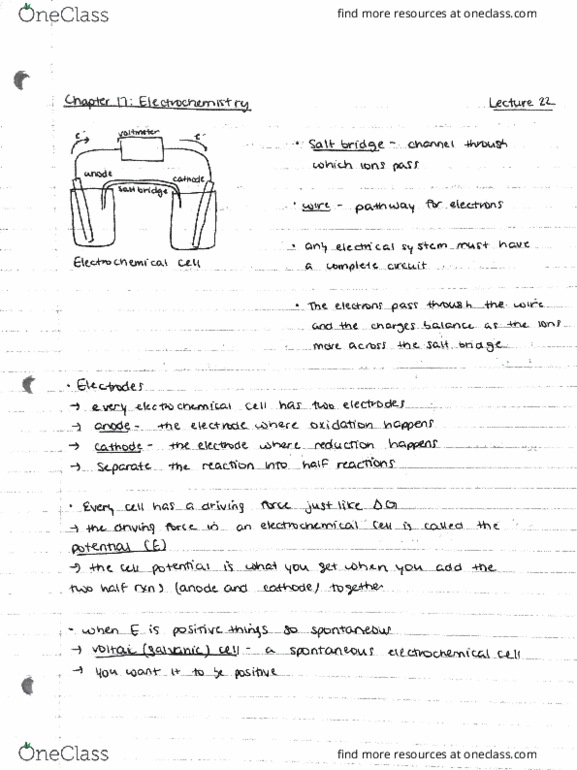 OneClass
find more resources at oneclass.com
Chapter 17: Electrochemistry
Lecture 22
e-
voltmeter
e-
anode
cathode
salt bridge
Electrochemical cell
• Salt bridge - channel through
which ions pass
• wire - pathway for electrons
• any electrical system must have
a complete circuit
• The electrons pass through the wire
and the charges balance as the ions
move across the salt bridge
• Electrodes
→ every electrochemical cell has two electrodes
→ anode - the electrode where oxidation happens
→ cathode - the electrode where reduction happens
→ Separate the reaction into half reactions
• Every cell has a driving force just like ΔG
→ the driving force in an electrochemical cell is called the
potential (E)
→ the cell potential is what you get when you add the
two half rxns (anode and cathode) together
- when E is positive things go spontaneous
→ voltaic (galvanic) cell - a spontaneous electrochemical cell
→ you want it to be positive
OneClass
find more resources at oneclass.com